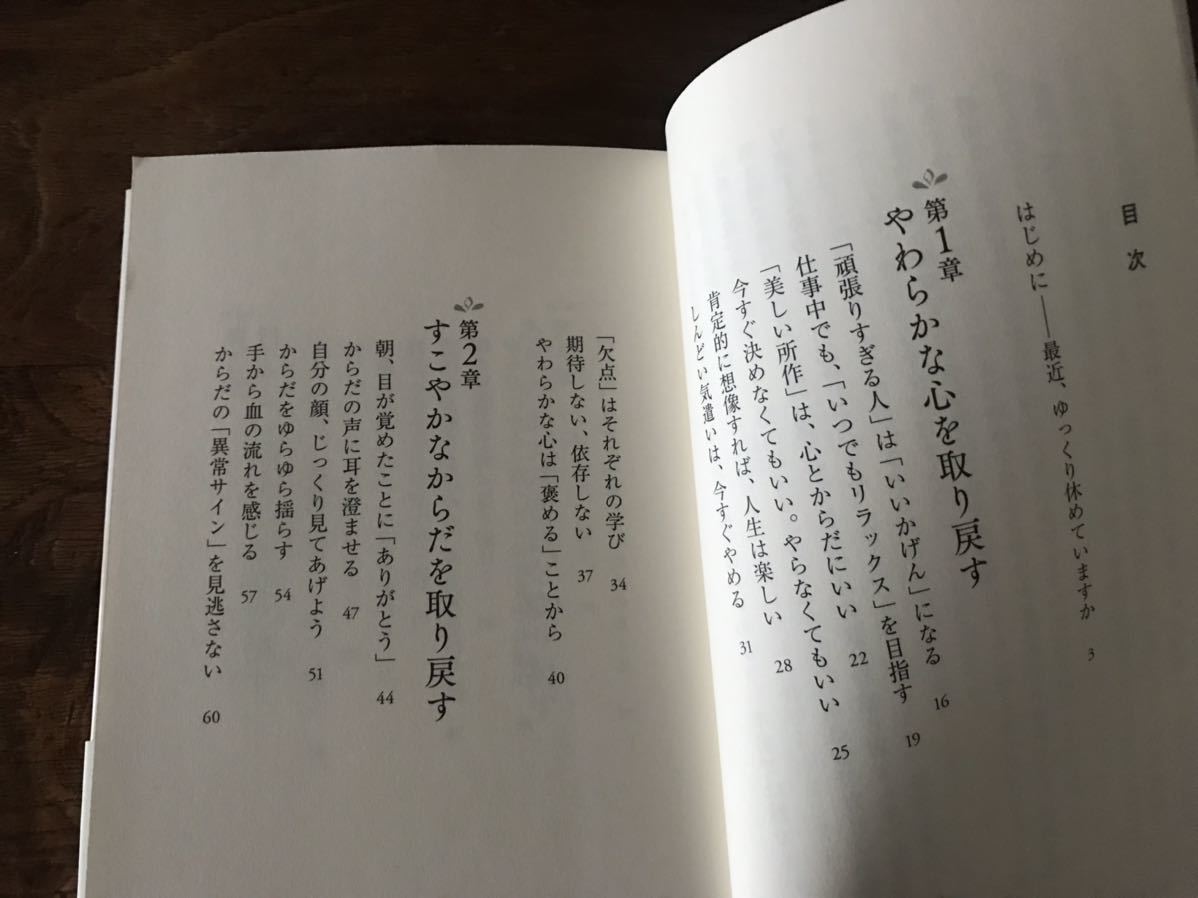 目次
はじめに――最近、ゆっくり休めていますか 3
第1章
やわらかな心を取り戻す
「頑張りすぎる人」は「いいかげん」になる 16
仕事中でも、「いつでもリラックス」を目指す 19
「美しい所作」は、心とからだにいい 22
今すぐ決めなくてもいい。やらなくてもいい 25
肯定的に想像すれば、人生は楽しい 28
しんどい気遣いは、今すぐやめる 31
「欠点」はそれぞれの学び 34
期待しない、依存しない 37
やわらかな心は「褒める」ことから 40
第2章
すこやかなからだを取り戻す
朝、目が覚めたことに「ありがとう」 44
からだの声に耳を澄ませる 47
自分の顔、じっくり見てあげよう 51
からだをゆらゆら揺らす 54
手から血の流れを感じる 57
からだの「異常サイン」を見逃さない 60